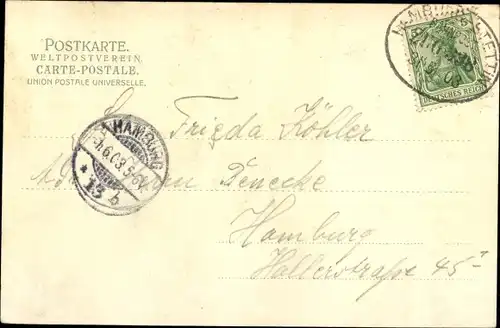 POSTKARTE.
WELTPOSTVEREIN.
CARTE-POSTALE.
UNION POSTALE UNIVERSELLE.
DEUTSCHES REICH
HAMBURG
13 b
Frieda Köhler
Denecke
Hamburg
Hallerstraße 45